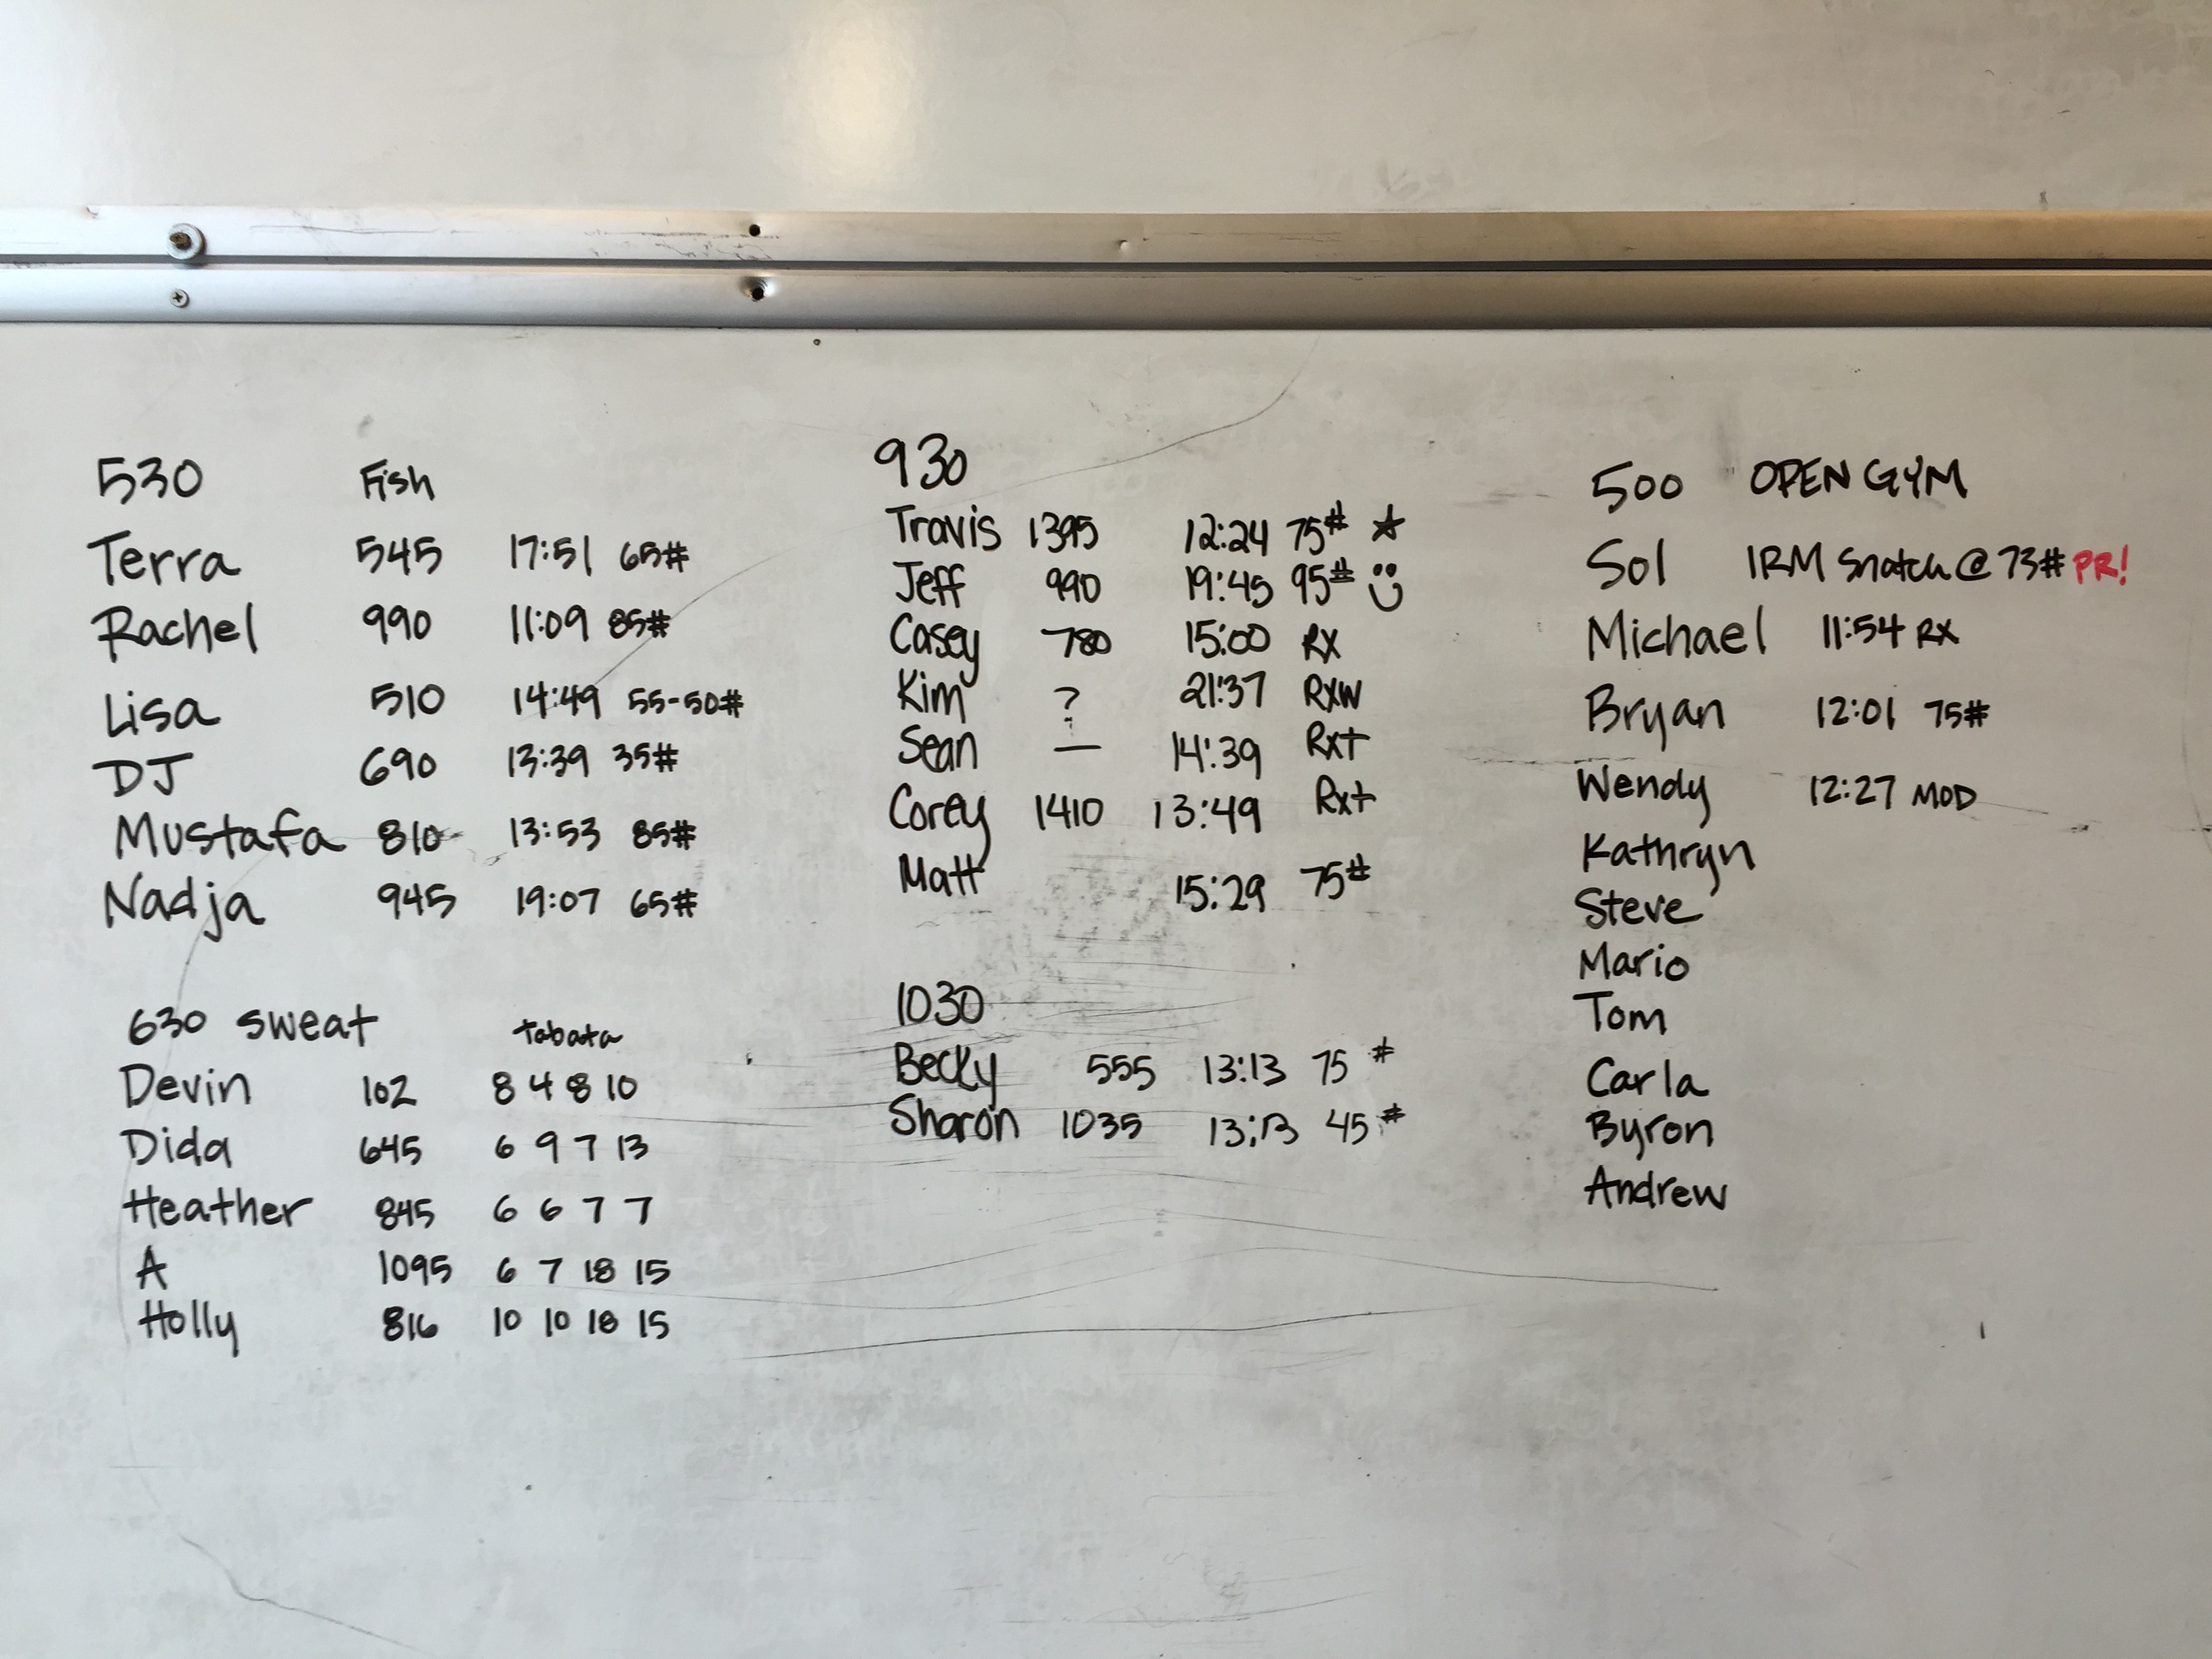 530 Fish
Terra 545 17:51 65#
Rachel 990 11:09 85#
Lisa 510 14:49 55-50#
DJ 690 13:39 35#
Mustafa 810 13:53 85#
Nadja 945 19:07 65#
630 sweat tabata
Devin 102 8 4 8 10
Dida 645 6 9 7 13
Heather 845 6 6 7 7
A 1095 6 7 18 15
Holly 816 10 10 18 15
930
Travis 1395 12:24 75# ☆
Jeff 990 19:45 95# ü
Casey 780 15:00 RX
Kim ? 21:37 RXW
Sean — 14:39 RX+
Corey 1410 13:49 RX+
Matt 15:29 75#
1030
Becky 555 13:13 75 #
Sharon 1035 13:13 45 #
500 OPEN GYM
Sol 1RM Snatch @ 73# PR!
Michael 11:54 RX
Bryan 12:01 75#
Wendy 12:27 MOD
Kathryn
Steve
Mario
Tom
Carla
Byron
Andrew